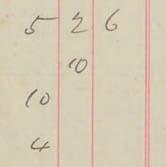 5 2 6
10
10
4